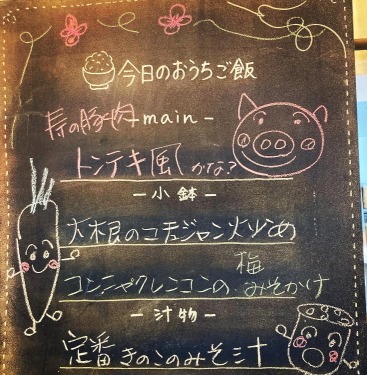 今日のおうちご飯
寿の豚肉 main -
トンテキ風 かな?
- 小鉢 -
大根のコチュジャン炒め
コンニャクレンコンの梅みそかけ
- 汁物 -
定番きのこのみそ汁